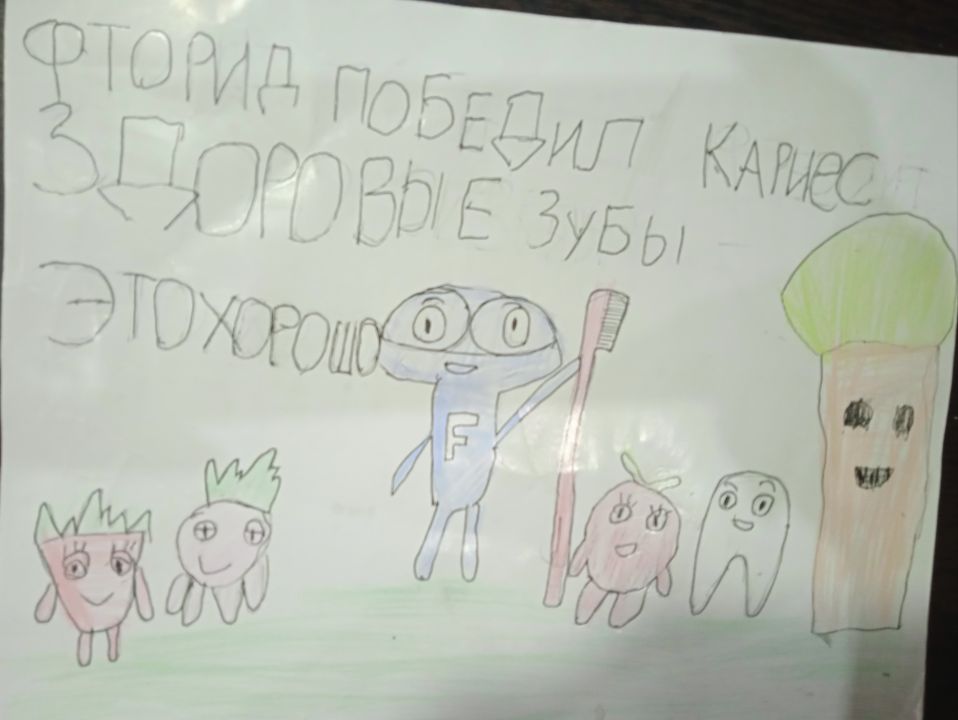 ФТОРИД ПОБЕДИЛ КАРИЕС
ЗДОРОВЫЕ ЗУБЫ
ЭТО ХОРОШО
F